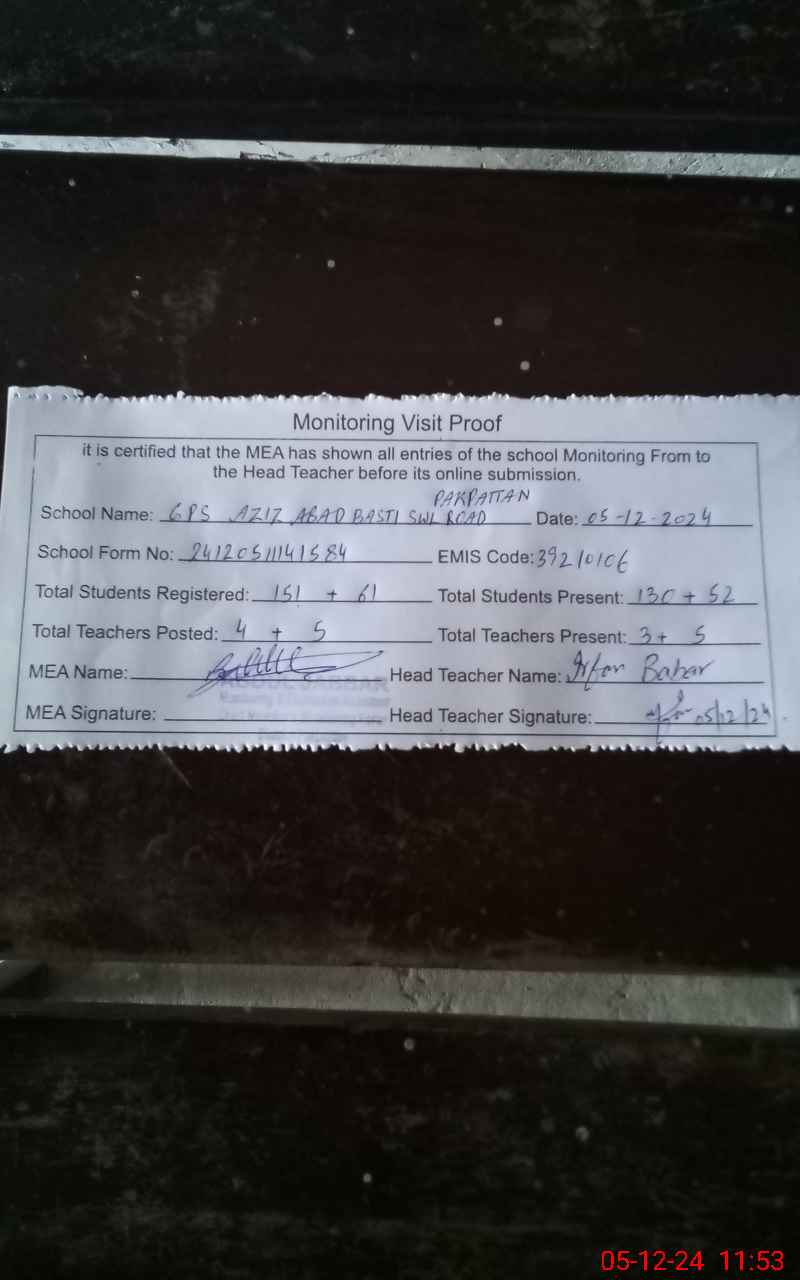 Monitoring Visit Proof
it is certified that the MEA has shown all entries of the school Monitoring From to
the Head Teacher before its online submission.
PAKPATTAN
School Name: GPS AZIZ ABAD BASTI SWL ROAD Date: 05-12-2024
School Form No: 24120511141584 EMIS Code: 39210106
Total Students Registered: 151 + 61 Total Students Present: 130 + 52
Total Teachers Posted: 4 + 5 Total Teachers Present: 3 + 5
MEA Name: Head Teacher Name: Irfan Babar
ABDUL JABBAR
MEA Signature: Head Teacher Signature: 05/12/24
05-12-24 11:53